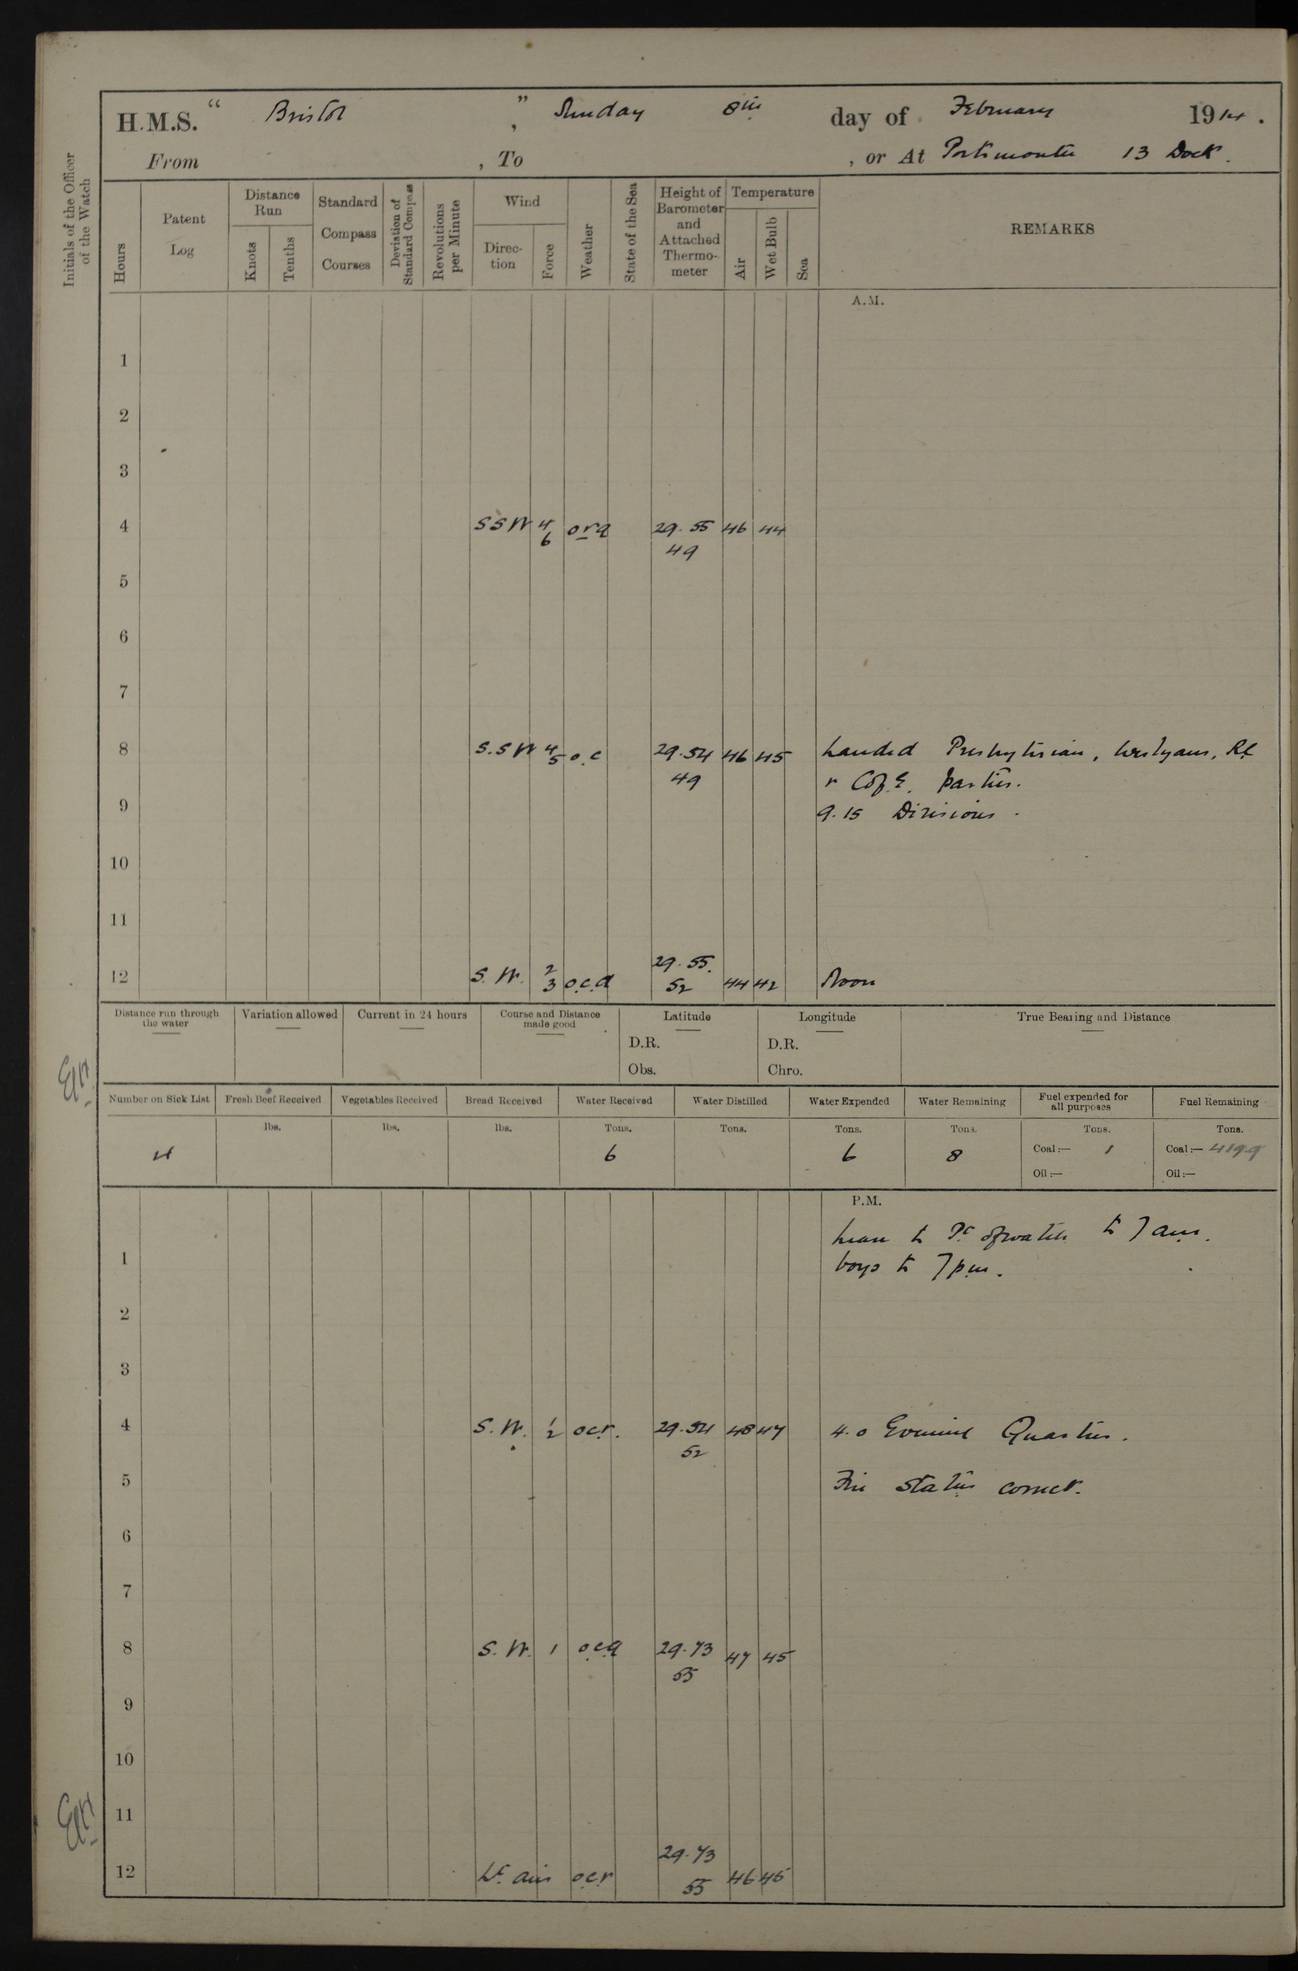 H.M.S. " Bristol ", Sunday 8th day of February 1914.
From , To , or At Portsmouth 13 Dock.
Initials of the Officer of the Watch
Hours
Patent Log
Distance Run
Knots
Tenths
Standard Compass Courses
Deviation of Standard Compass
Revolutions per Minute
Wind
Direction
Force
Weather
State of the Sea
Height of Barometer and Attached Thermometer
Temperature
Air
Wet Bulb
Sea
REMARKS
A.M.
1
2
3
4 SSW 4 6 orq 29.55 49 46 44
5
6
7
8 S.SW 4 5 o.c 29.54 49 46 45 Landed Presbyterian, Wesleyans, RC
& C of E. parties.
9 9.15 Divisions.
10
11
12 S.W. 2 3 o.c.d 29.55 52 44 42 Noon
Distance run through the water
Variation allowed
Current in 24 hours
Course and Distance made good
Latitude
D.R.
Obs.
Longitude
D.R.
Chro.
True Bearing and Distance
Number on Sick List
Fresh Beef Received
Vegetables Received
Bread Received
Water Received
Water Distilled
Water Expended
Water Remaining
Fuel expended for all purposes
Fuel Remaining
lbs. lbs. lbs. Tons. Tons. Tons. Tons. Tons. Tons.
4 6 6 8 Coal:— 1 Coal:— 419.9
Oil:— Oil:—
P.M.
Leave to Pt of watch to 7 am.
1 boys to 7 pm.
2
3
4 S.W. 1 2 o.c.r. 29.54 52 48 47 4.0 Evening Quarters.
5 Fire Stations correct.
6
7
8 S.W. 1 o.c.q 29.73 55 47 45
9
10
11
12 Lt. airs o.c.r 29.73 55 46 45